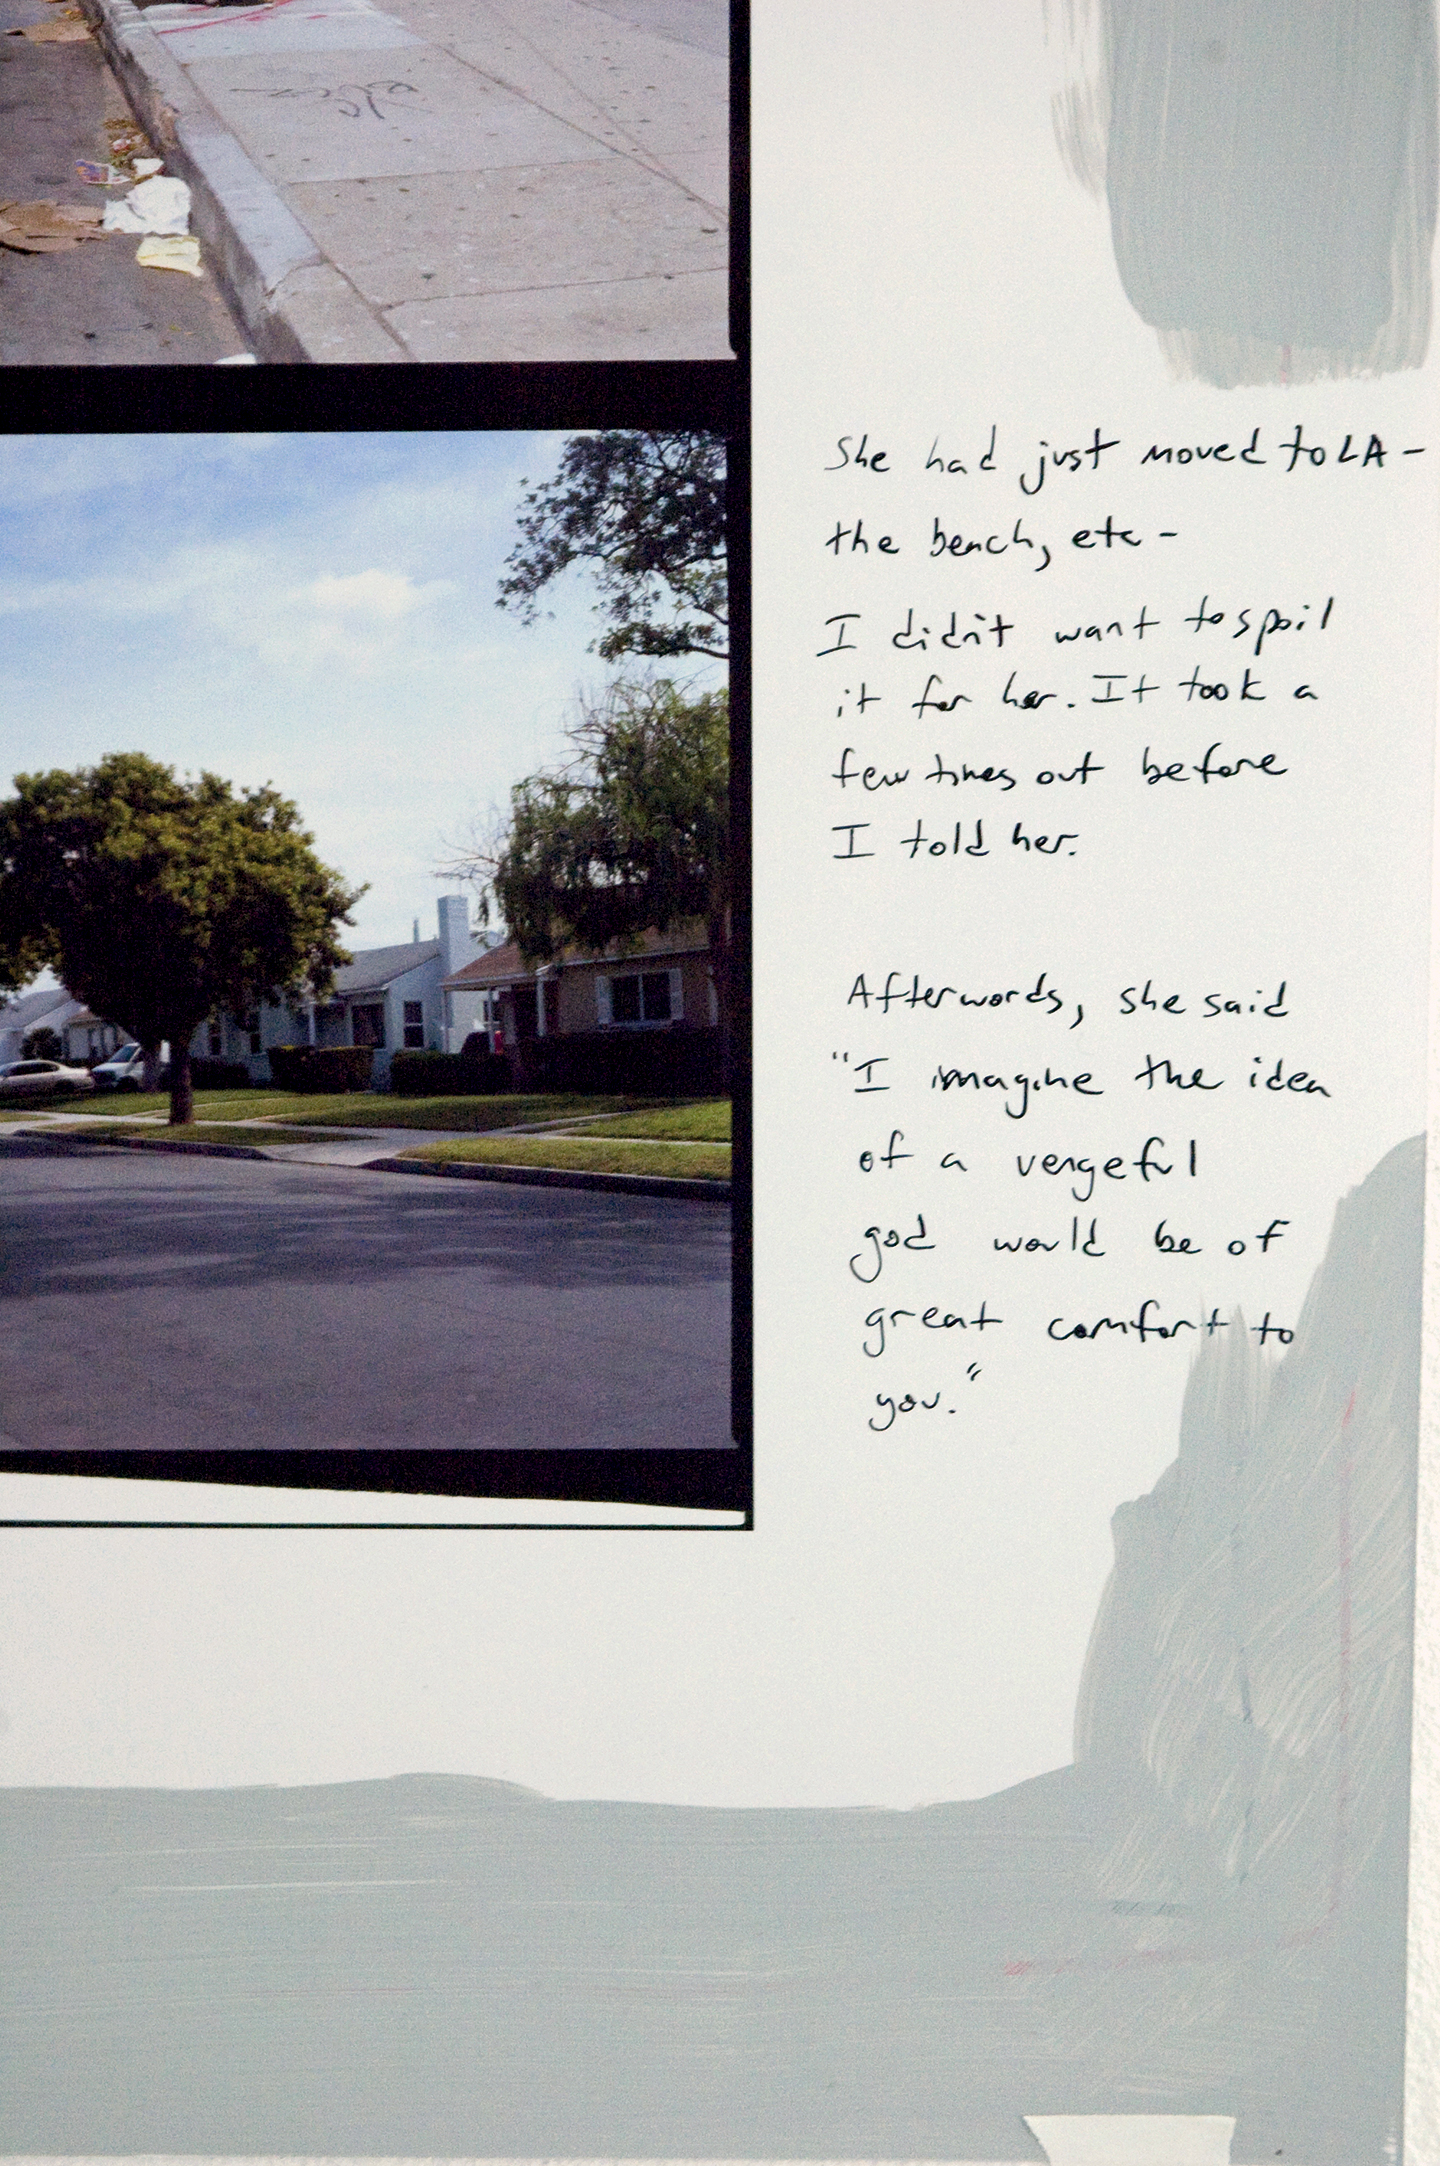 She had just moved to LA -
the beach, etc -
I didn't want to spoil
it for her. It took a
few times out before
I told her.
Afterwords, she said
"I imagine the idea
of a vengeful
god would be of
great comfort to
you."